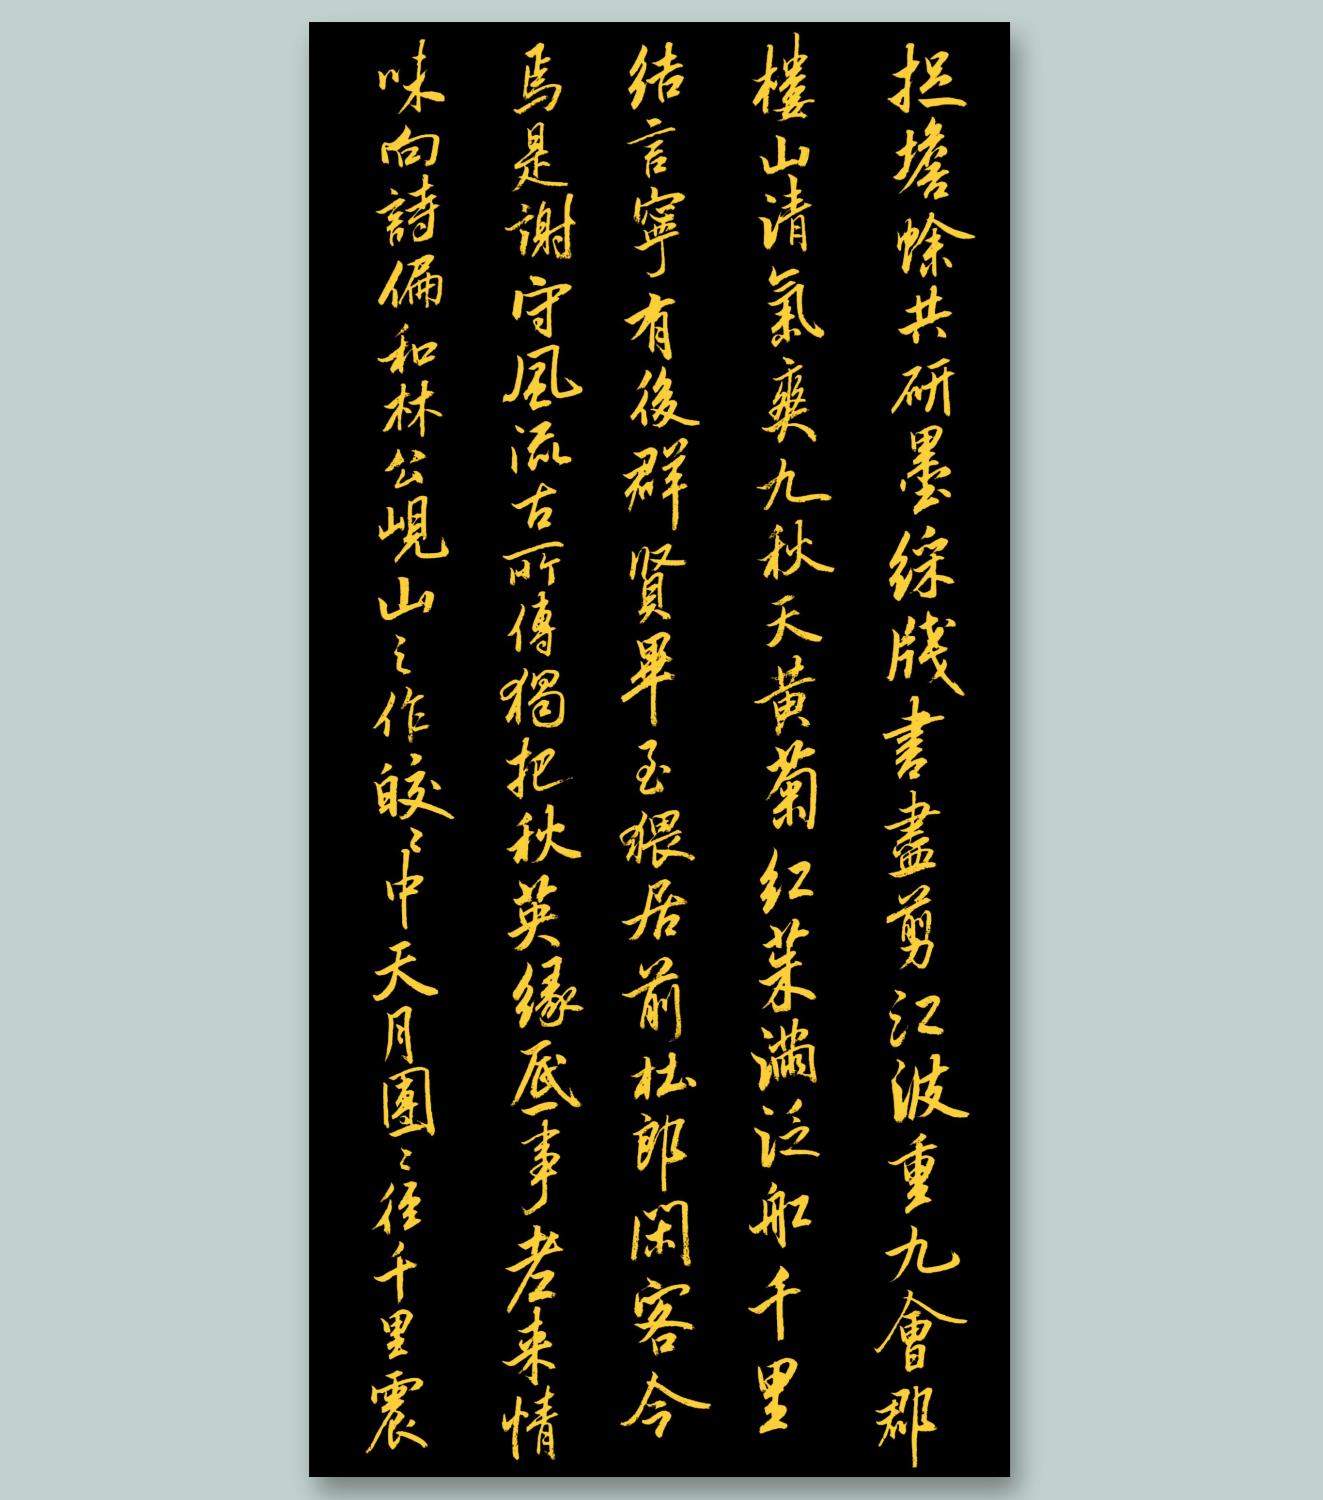 捉蟾蜍共研墨綵牋書盡剪江波重九會郡
樓山清氣爽九秋天黃菊紅茱滿泛船千里
結言寧有後群賢畢至猥居前杜郎閑客今
焉是謝守風流古所傳獨把秋英緣底事老來情
味向詩偏和林公峴山之作皎〻中天月團〻徑千里震